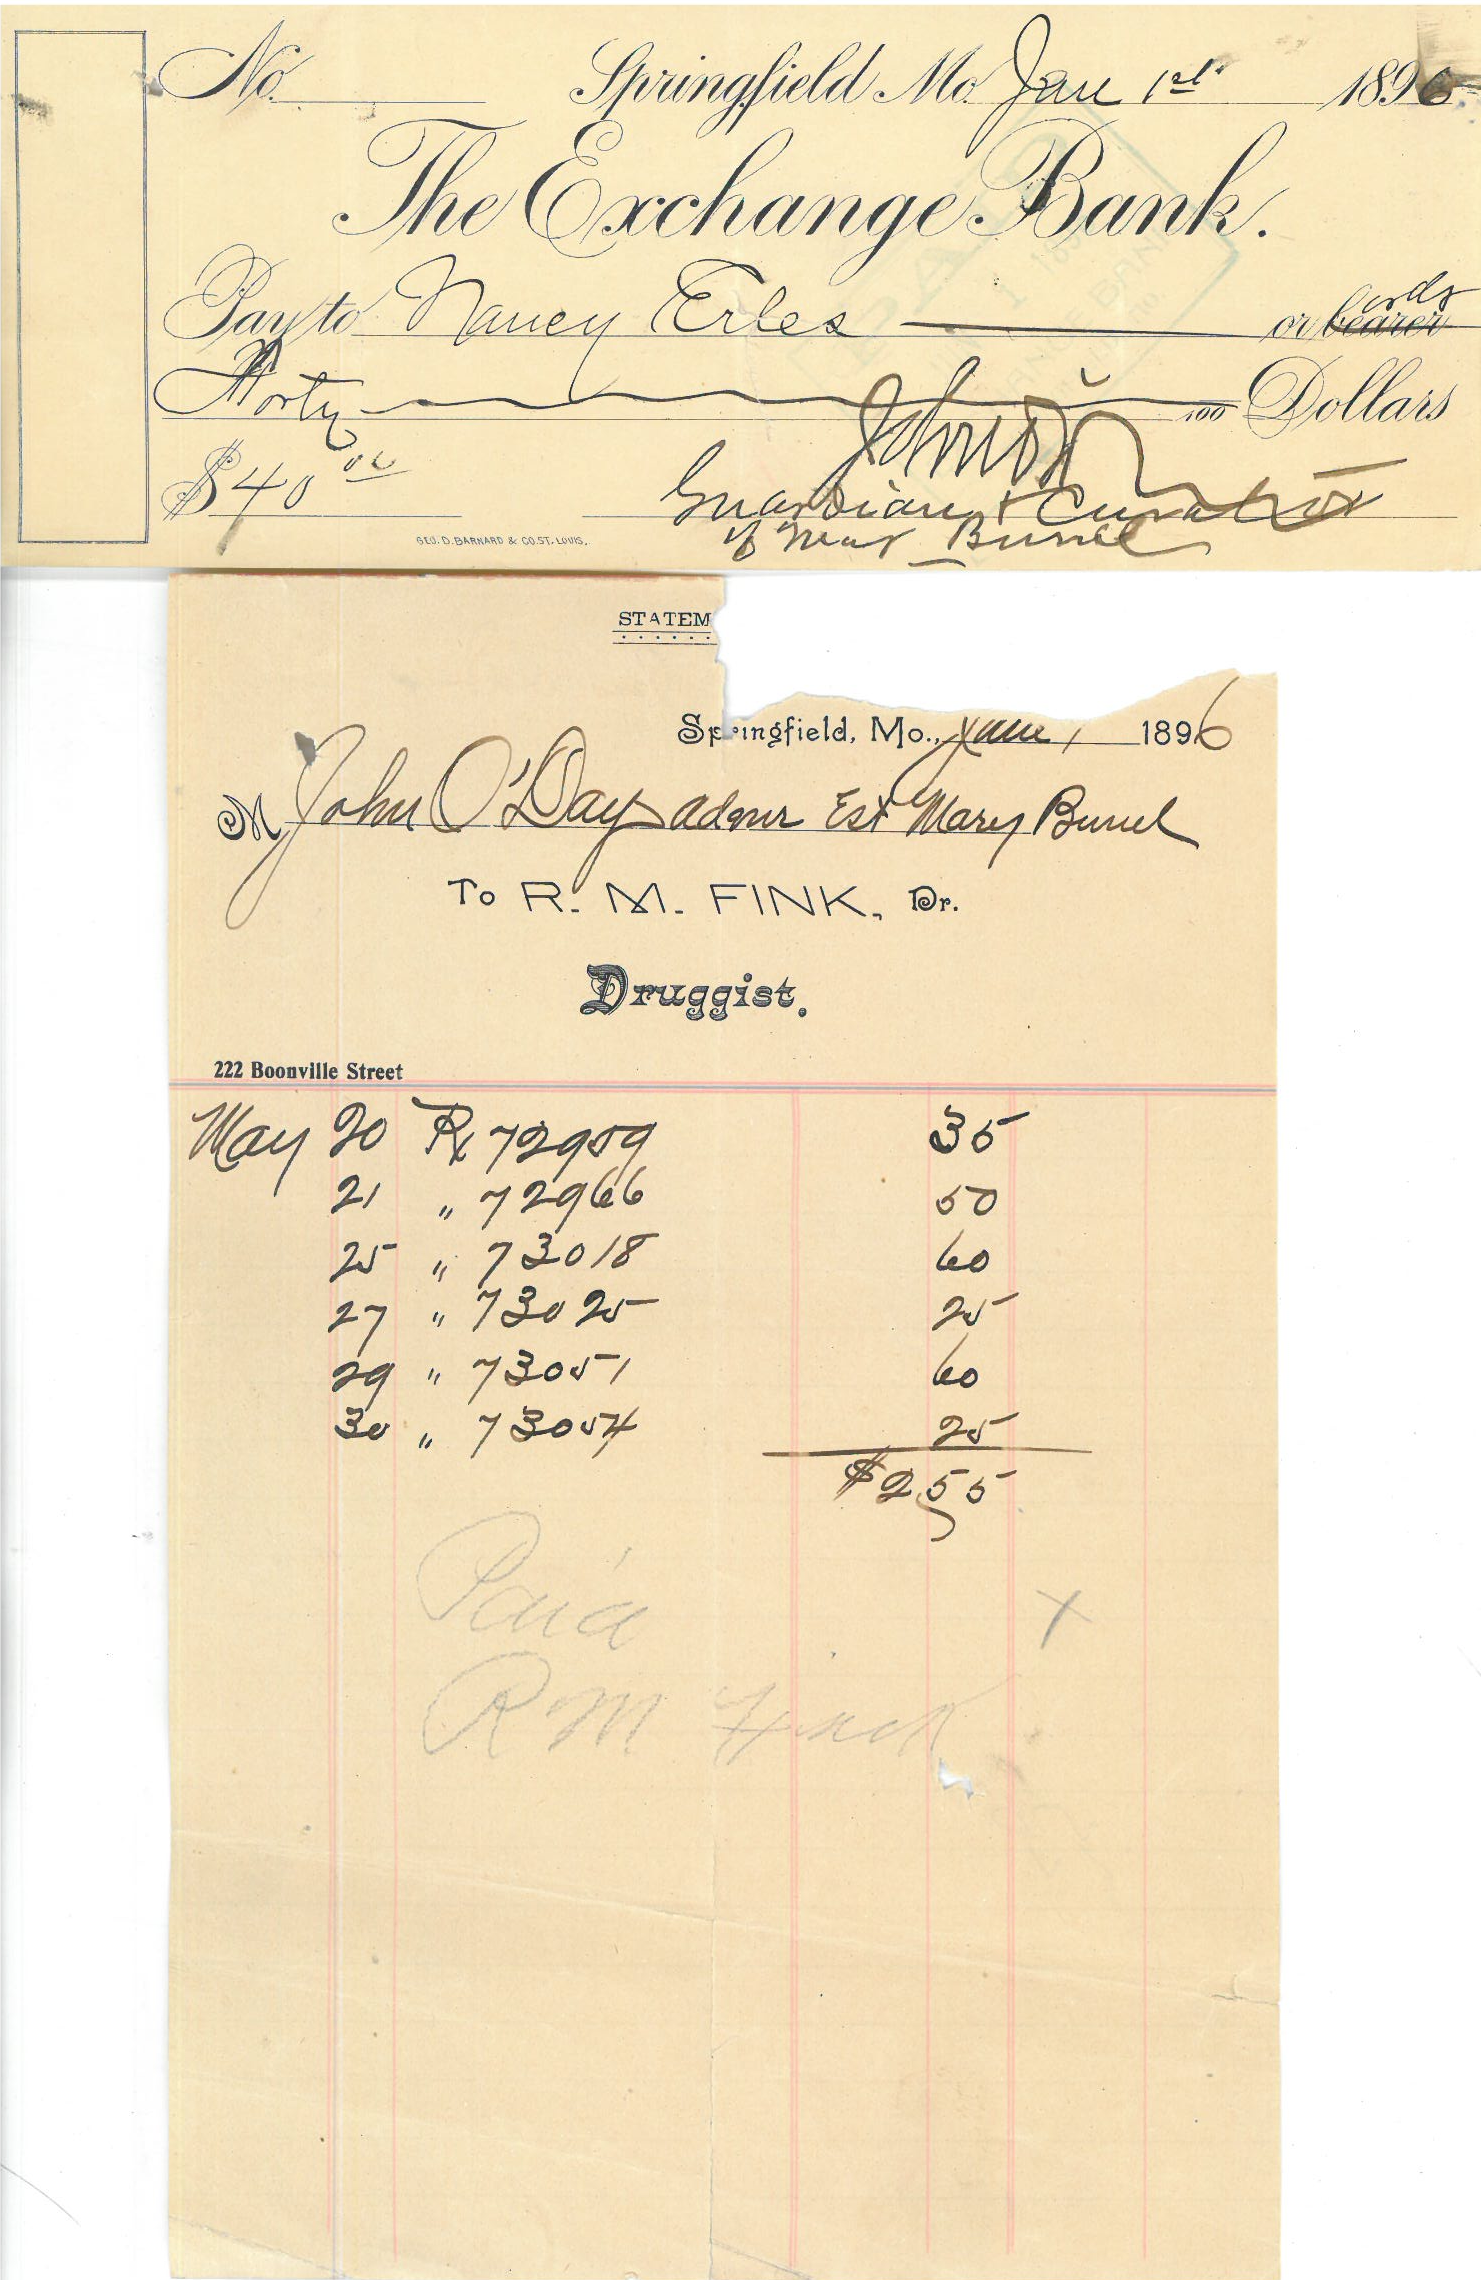 No. Springfield Mo. Jan 1st 1896
The Exchange Bank.
Pay to Nancy Erles or bearer order
Forty 100 Dollars
$40 00
John O'Day
Guardian & Curator
of Mary Burrel
GEO. D. BARNARD & CO. ST. LOUIS.
STATEM
Springfield, Mo., June 1 1896
M John O'Day admr Est Mary Burrel
To R. M. FINK, Dr.
Druggist.
222 Boonville Street
May 20 Rx 72959 35
21 " 72966 50
25 " 73018 60
27 " 73025 25
29 " 73051 60
30 " 73054 25
$2 55
Paid
x
R M Fink